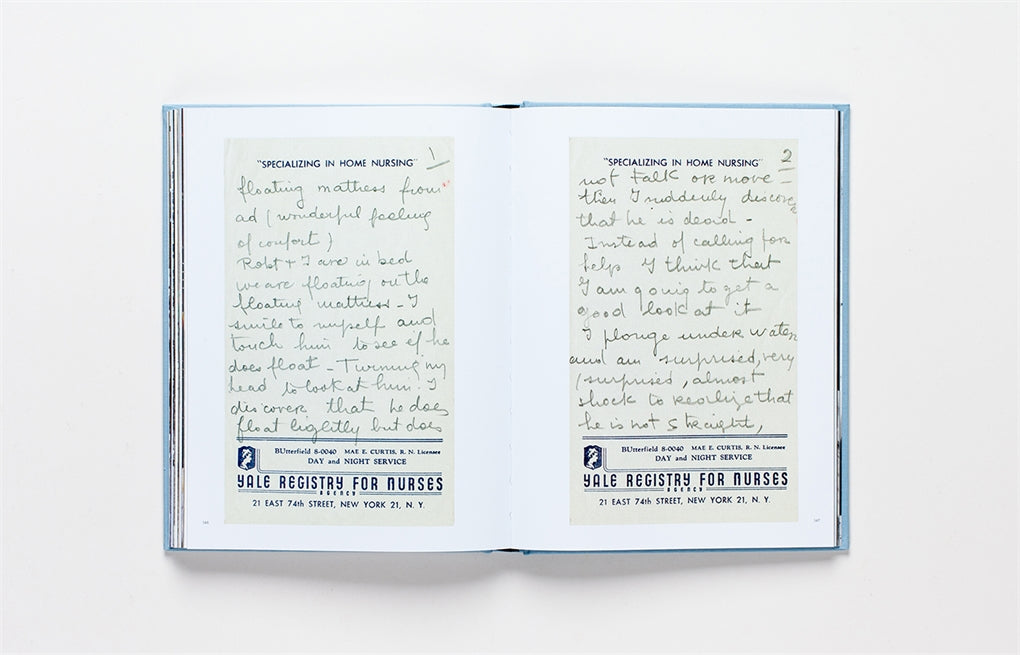 "SPECIALIZING IN HOME NURSING" 1
floating mattress from
ad (wonderful feeling
of confort)
Robt + I are in bed
we are floating on the
floating mattress - I
smile to myself and
touch him to see if he
does float - Turning my
head to look at him. I
discover that he does
float lightly but does
BUtterfield 8-0040 MAE E. CURTIS, R. N. Licensee
DAY and NIGHT SERVICE
YALE REGISTRY FOR NURSES
AGENCY
21 EAST 74th STREET, NEW YORK 21, N. Y.
"SPECIALIZING IN HOME NURSING" 2
not talk or move -
then I suddenly discover
that he is dead -
Instead of calling for
help I think that
I am going to get a
good look at it
I plonge under water
and am surprised, very
(surprised, almost
shock to realize that
he is not straight,
BUtterfield 8-0040 MAE E. CURTIS, R. N. Licensee
DAY and NIGHT SERVICE
YALE REGISTRY FOR NURSES
AGENCY
21 EAST 74th STREET, NEW YORK 21, N. Y.